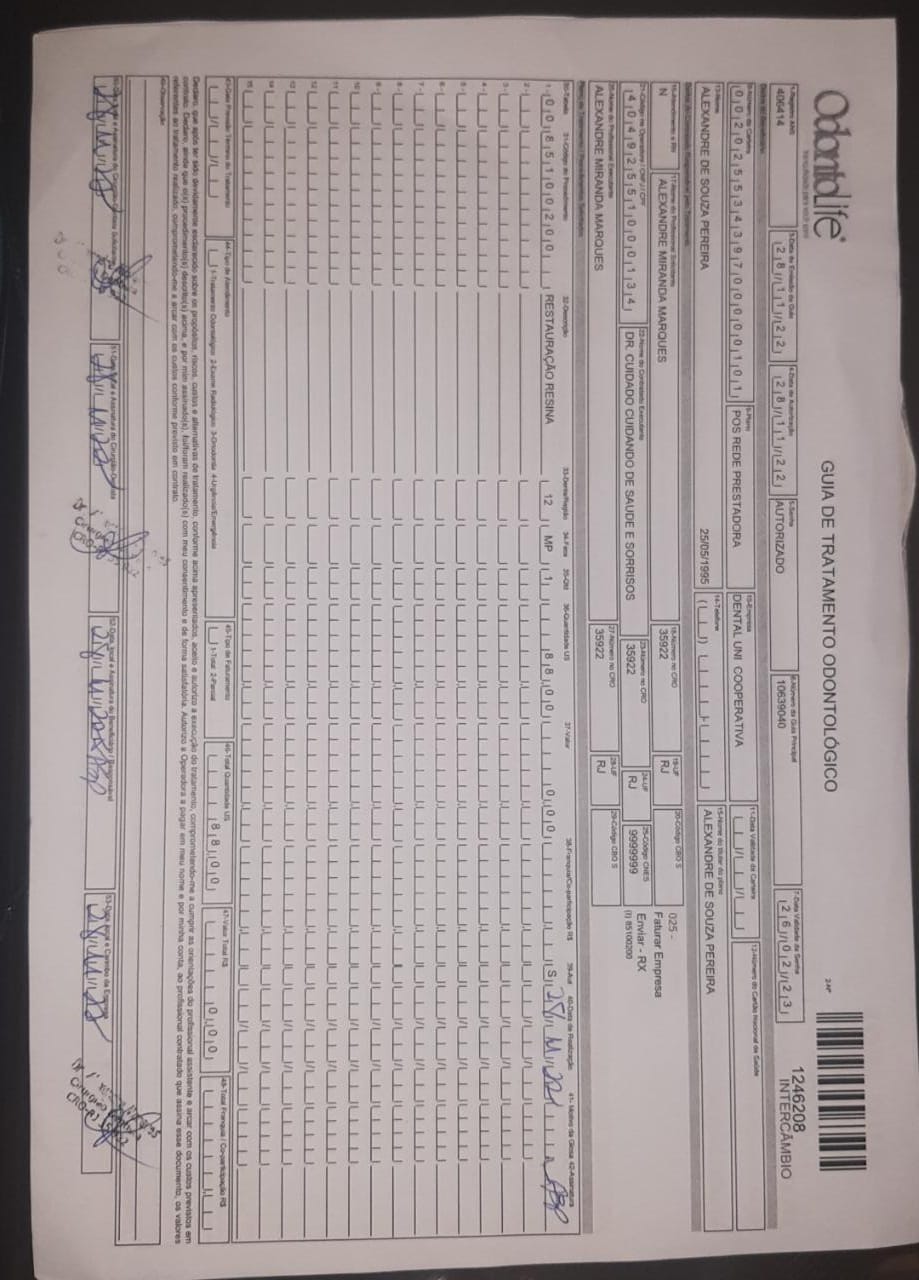 OdontoLife®
GUIA DE TRATAMENTO ODONTOLÓGICO
2-Nº
1246208
INTERCÂMBIO
1-Registro ANS
406414
3-Data de Emissão da Guia
28/11/22
4-Data de Autorização
28/11/22
5-Senha
AUTORIZADO
6-Número da Guia Principal
10639040
7-Data Validade da Senha
26/02/23
8-Número da Carteira
00202553439700000101
9-Plano
POS REDE PRESTADORA
10-Empresa
DENTAL UNI COOPERATIVA
11-Data Validade da Carteira
12-Número do Cartão Nacional de Saúde
13-Nome
ALEXANDRE DE SOUZA PEREIRA
25/05/1995
14-Telefone
15-Nome do titular do plano
ALEXANDRE DE SOUZA PEREIRA
16-Atendimento a RN
N
17-Nome do Profissional Solicitante
ALEXANDRE MIRANDA MARQUES
18-Número no CRO
35922
19-UF
RJ
20-Código CBO S
025 -
Faturar Empresa
21-Código na Operadora / CNPJ / CPF
40492551000134
22-Nome do Contratado Executante
DR. CUIDADO CUIDANDO DE SAUDE E SORRISOS
23-Número no CRO
35922
24-UF
RJ
25-Código CNES
9999999
Enviar - RX
(I) 85100200
26-Nome do Profissional Executante
ALEXANDRE MIRANDA MARQUES
27-Número no CRO
35922
28-UF
RJ
29-Código CBO S
30-Tabela 31-Código do Procedimento 32-Descrição 33-Dente/Região 34-Face 35-Qtd 36-Quantidade US 37-Valor 38-Franquia/Co-participação R$ 39-Aut 40-Data de Realização 41- Motivo da Glosa 42-Assinatura
1- 00 85100200 RESTAURAÇÃO RESINA 12 MP 1 88,00 0,00 S
2-
3-
4-
5-
6-
7-
8-
9-
10-
11-
12-
13-
14-
15-
43-Data Previsão Término do Tratamento
44-Tipo de Atendimento
1-Tratamento Odontológico 2-Exame Radiológico 3-Ortodontia 4-Urgência/Emergência
45-Tipo de Faturamento
1-Total 2-Parcial
46-Total Quantidade US
88,00
47-Valor Total R$
0,00
48-Total Franquia / Co-participação R$
Declaro, que após ter sido devidamente esclarecido sobre os propósitos, riscos, custos e alternativas de tratamento, conforme acima apresentados, aceito e autorizo a execução do tratamento, comprometendo-me a cumprir as orientações do profissional assistente e arcar com os custos previstos em
contrato. Declaro, ainda que o(s) procedimento(s) descrito(s) acima, e por mim assinado(s), foi/foram realizado(s) com meu consentimento e de forma satisfatória. Autorizo a Operadora a pagar em meu nome e por minha conta, ao profissional contratado que assina esse documento, os valores
referentes ao tratamento realizado, comprometendo-me a arcar com os custos conforme previsto em contrato.
49-Observação
51-Data local e Assinatura do Cirurgião-Dentista
52-Data local e Assinatura do Beneficiário / Responsável
53-Data local e Carimbo da Empresa